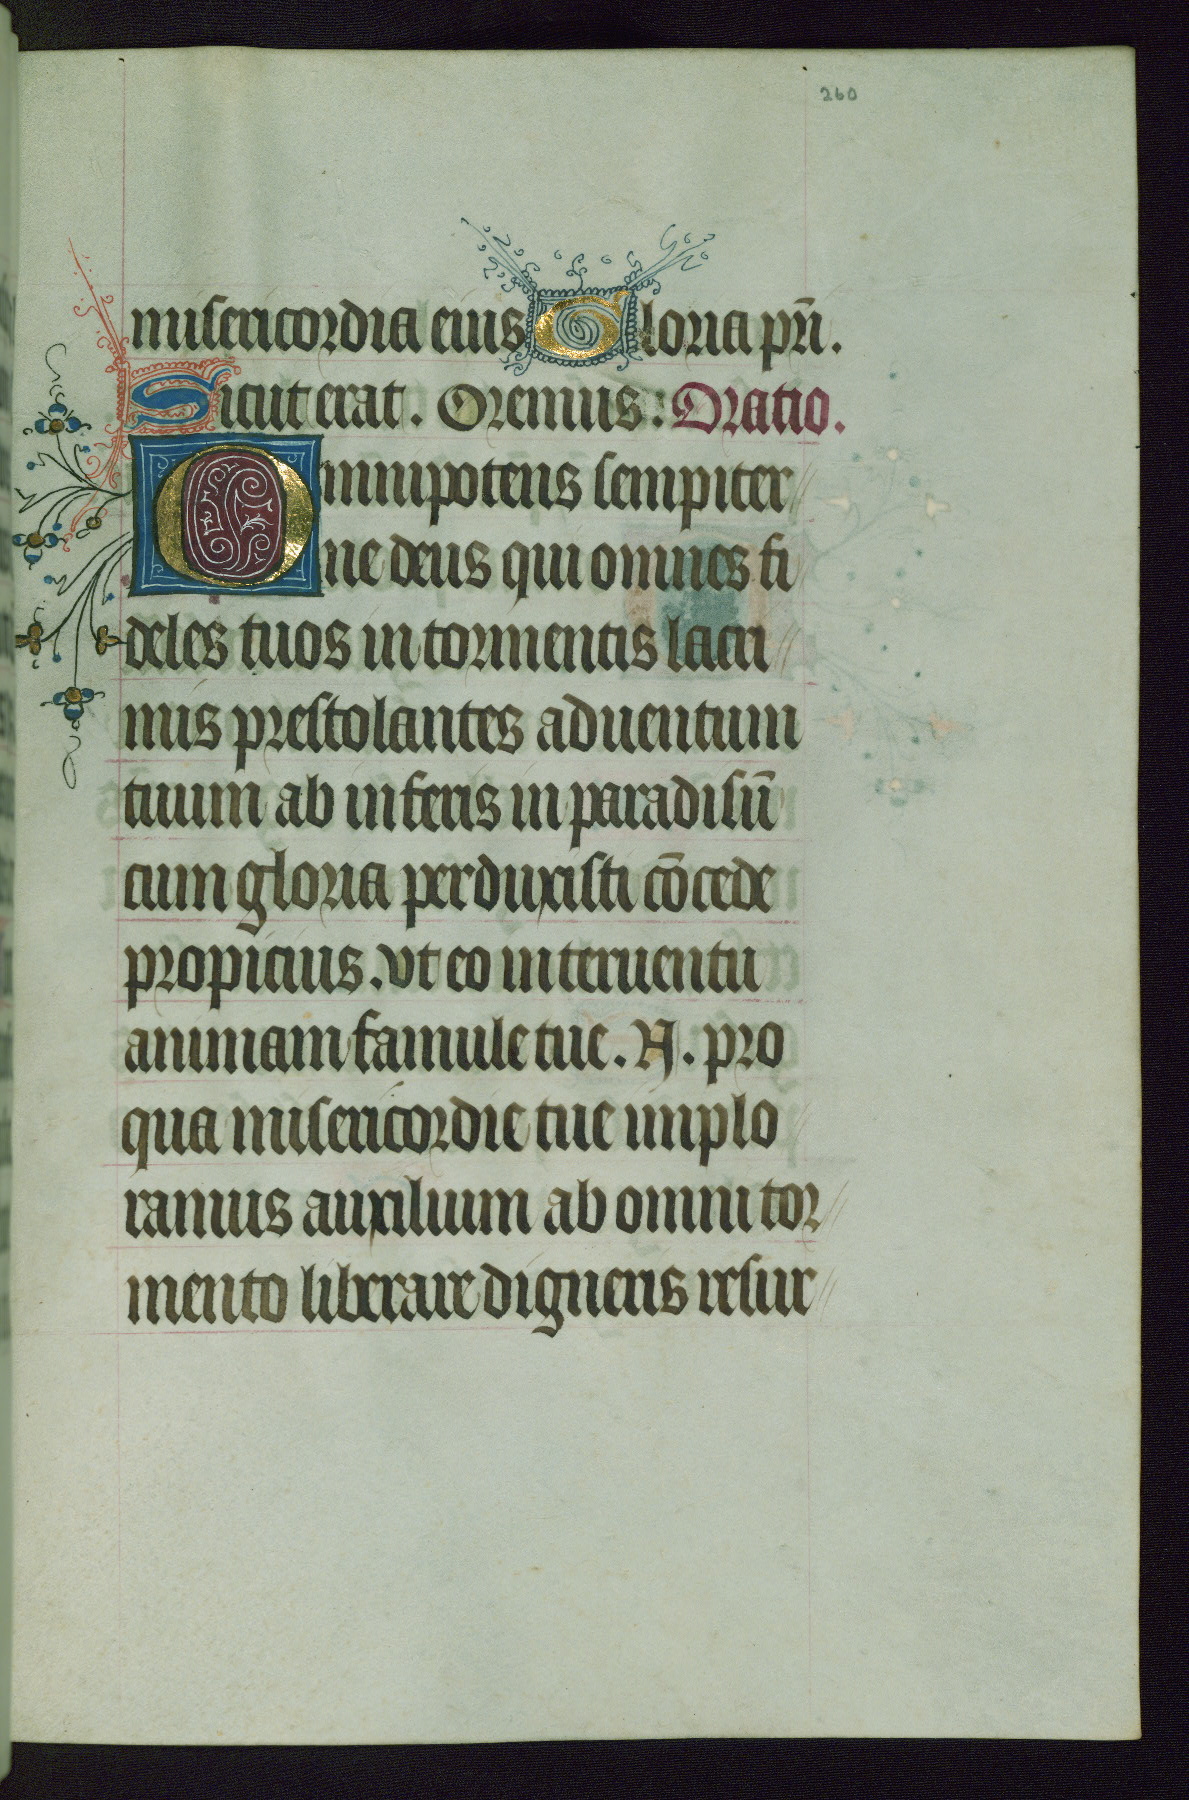 260
misericordia eius Gloria pr̄i.
Sicut erat. Oremus: Oratio.
Omnipotens sempiter
ne deus qui omnes fi
deles tuos in tormentis lacri
mis prestolantes aduentum
tuum ab inferis in paradisū
cum gloria perduxisti cōcede
propicius. vt eo interuentu
animam famule tue. N. pro
qua misericordie tue implo
ramus auxilium ab omni tor
mento liberare digneris resur